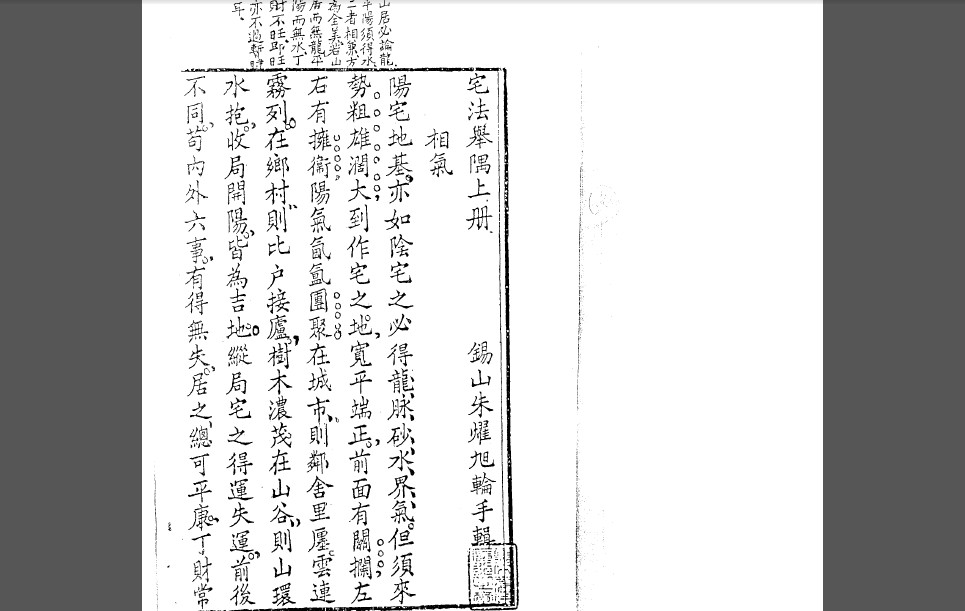 宅法舉隅上册 錫山朱燿旭輪手輯
相氣
陽宅地基亦如陰宅之必得龍脉砂水界氣但須來
勢粗雄濶大到作宅之地寬平端正前面有關攔左
右有擁衞陽氣氤氳團聚在城市則鄰舍里廛雲連
霧列在鄉村則比户接廬樹木濃茂在山谷則山環
水抱收局開陽皆為吉地縱局宅之得運失運前後
不同苟內外六事有得無失居之總可平康丁財常
山居必論龍
平陽須得水
二者相兼方
為全美若山
居而無龍平
陽而無水丁
財不旺即旺
亦不過暫時
年